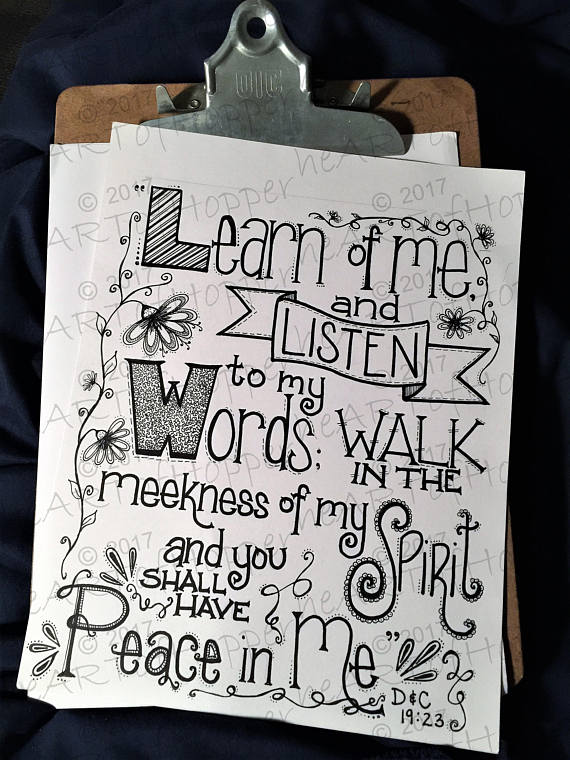 "Learn of me,
and
LISTEN
to my
Words; WALK
IN THE
meekness of my
Spirit
and you
SHALL
HAVE
Peace in Me"
D&C
19:23
© 2017
heARTofHopper